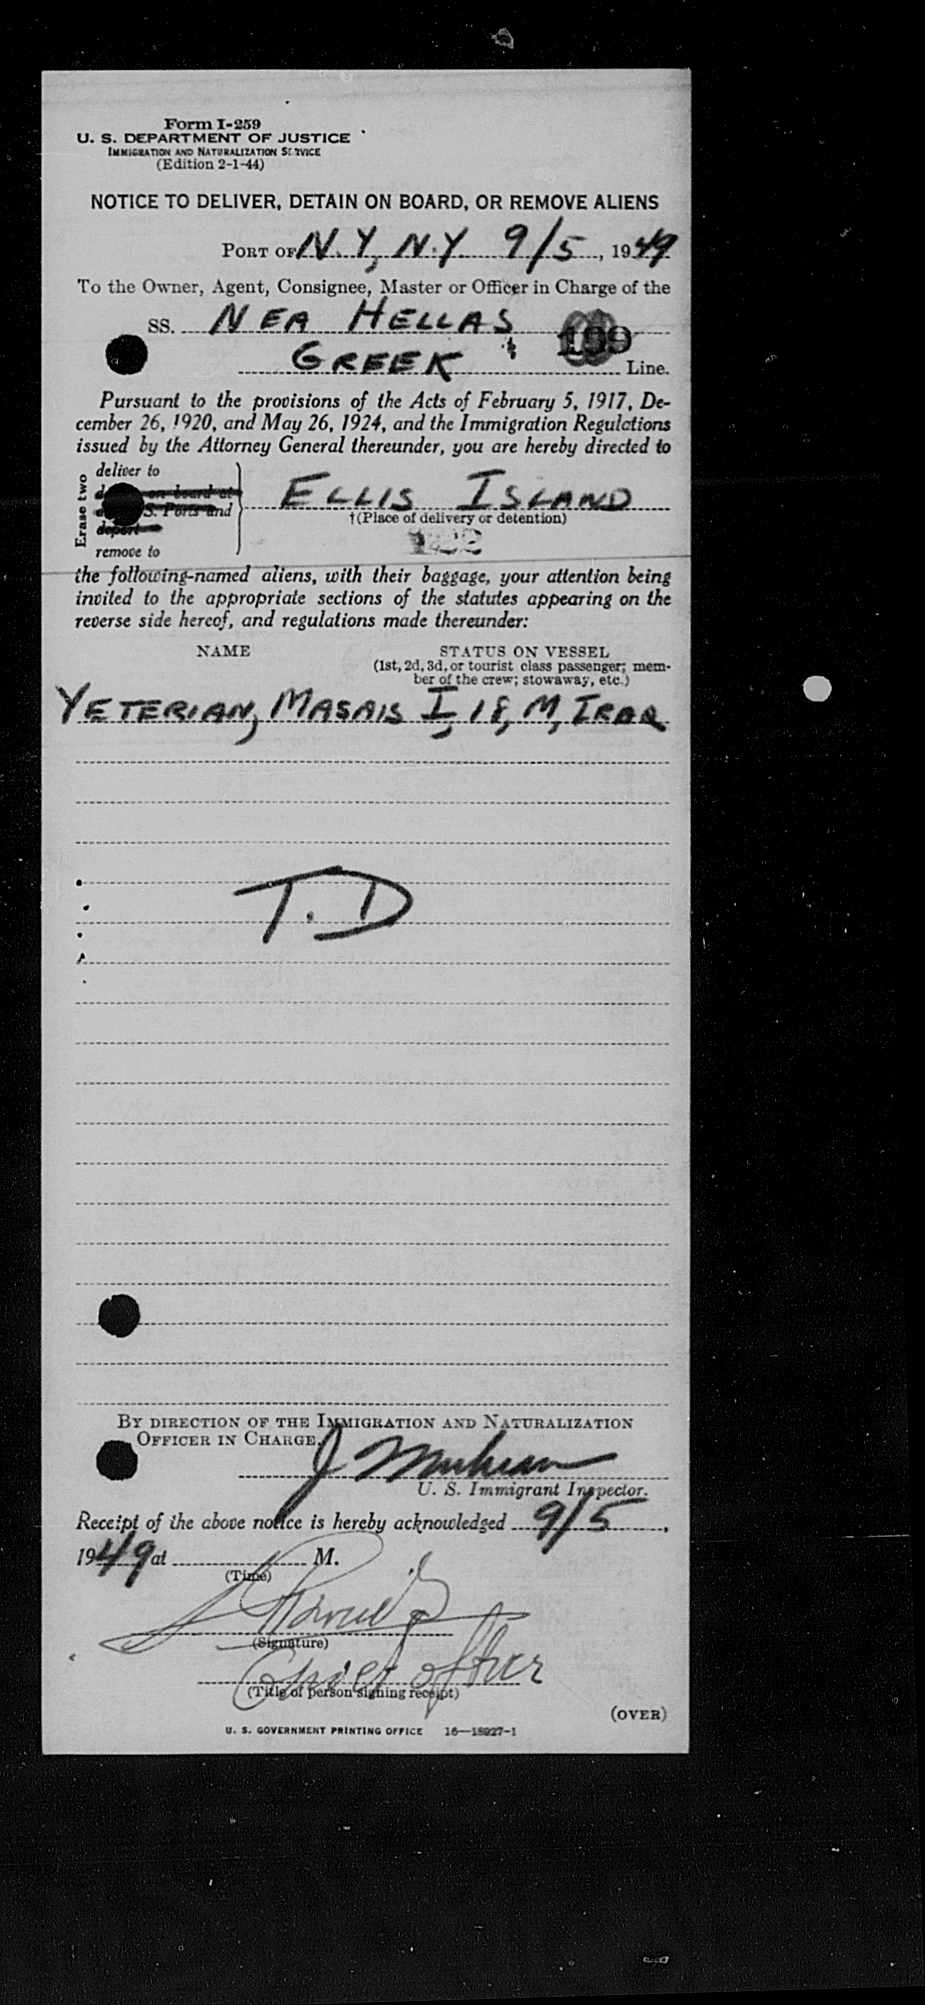 Form I-259
U. S. DEPARTMENT OF JUSTICE
IMMIGRATION AND NATURALIZATION SERVICE
(Edition 2-1-44)
NOTICE TO DELIVER, DETAIN ON BOARD, OR REMOVE ALIENS
PORT OF N.Y, N.Y. 9/5, 1949
To the Owner, Agent, Consignee, Master or Officer in Charge of the
SS. NEA HELLAS
GREEK Line.
Pursuant to the provisions of the Acts of February 5, 1917, De-
cember 26, 1920, and May 26, 1924, and the Immigration Regulations
issued by the Attorney General thereunder, you are hereby directed to
Erase two
deliver to
on board at
S. Ports and
deport
remove to
ELLIS ISLAND
†(Place of delivery or detention)
the following-named aliens, with their baggage, your attention being
invited to the appropriate sections of the statutes appearing on the
reverse side hereof, and regulations made thereunder:
NAME STATUS ON VESSEL
(1st, 2d, 3d, or tourist class passenger; mem-
ber of the crew; stowaway, etc.)
YETERIAN, MASAIS I, 18, M, IRAQ
T. D
BY DIRECTION OF THE IMMIGRATION AND NATURALIZATION
OFFICER IN CHARGE.
J
U. S. Immigrant Inspector.
Receipt of the above notice is hereby acknowledged 9/5,
1949 at M.
(Time)
(Signature)
Chief officer
(Title of person signing receipt)
(OVER)
U. S. GOVERNMENT PRINTING OFFICE 16—18927-1